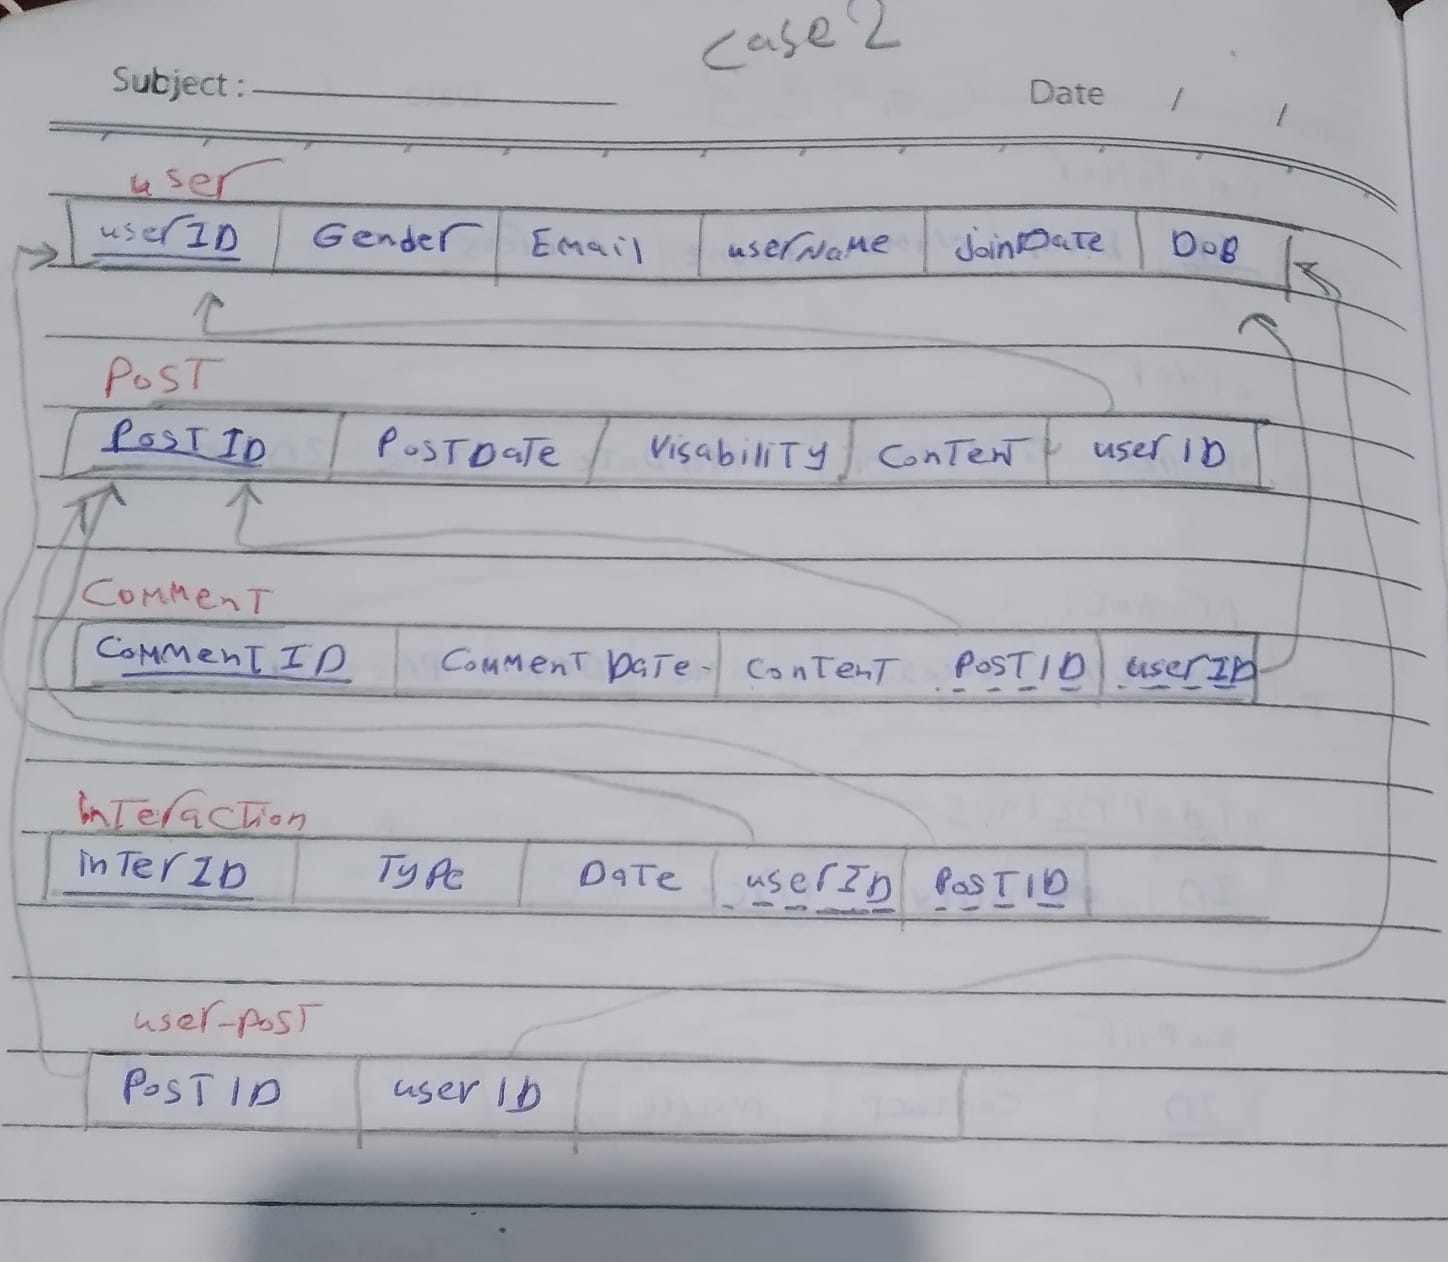 Case 2
Subject: Date / /
user
userID Gender Email userName JoinDate DOB
Post
Post ID Post Date Visability Content user ID
Comment
Comment ID Comment Date Content Post ID user ID
interaction
inter ID Type Date user ID Post ID
user-post
Post ID user ID